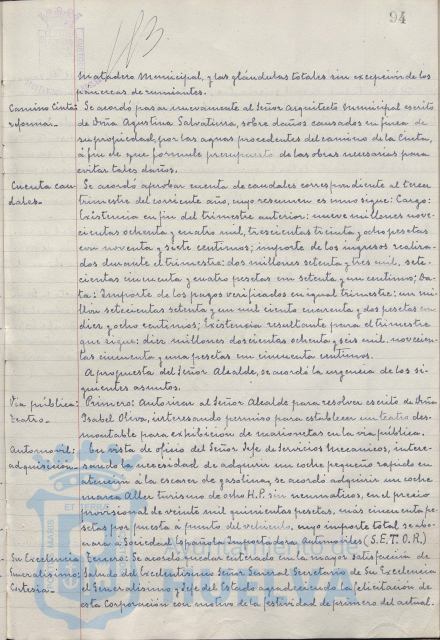 94
183
Matadero Municipal, y las glándulas totales sin excepción de los
páncreas de rumiantes.
Camino Cinta: Se acordó pasar nuevamente al Señor Arquitecto Municipal escrito
reforma.- de Dña Agustina Salvatierra, sobre daños causados en finca de
su propiedad, por las aguas procedentes del camino de la Cinta,
á fin de que formule presupuesto de las obras necesarias para
evitar tales daños.
Cuenta cau- Se acordó aprobar cuenta de caudales correspondiente al tercer
dales.- trimestre del corriente año, cuyo resumen es como sigue: Cargo:
Existencia en fin del trimestre anterior: nueve millones nove-
cientas ochenta y cuatro mil, trescientas treinta y ocho pesetas
con noventa y siete centimos; importe de los ingresos realiza-
dos durante el trimestre: dos millones setenta y tres mil, sete-
cientas cincuenta y cuatro pesetas con setenta y un centimos; Da-
ta: Importe de los pagos verificados en igual trimestre: un mi-
llón setecientas setenta y un mil ciento cuarenta y dos pesetas con
diez y ocho centimos; Existencia resultante para el trimestre
que sigue: diez millones doscientas ochenta y seis mil novecien-
tas cincuenta y una pesetas con cincuenta centimos.
A propuesta del Señor Alcalde, se acordó la urgencia de los si-
guientes asuntos.
Via pública: Primero: Autorizar al Señor Alcalde para resolver escrito de Dña
teatro.- Isabel Oliva, interesando permiso para establecer un teatro des-
montable para exhibicion de marionetas en la via pública.
Automovil; En vista de oficio del Señor Jefe de Servicios Mecanicos, intere-
adquisicion.- sando la necesidad de adquirir un coche pequeño rapido en
atención á la escasez de gasolina, se acordó adquirir un coche
marca Adler turismo de ocho H.P. sin neumaticos, en el precio
provisional de veinte mil quinientas pesetas, más cincuenta pe-
setas por puesta á punto del vehiculo, cuyo importe total se abo-
nara á Sociedad Española Importadora Automoviles (S.E.T.O.R.)
Su Excelencia Tercero: Se acordó quedar enterado con la mayor satisfacción de
Generalisimo: Saluda del Excelentisimo Señor General Secretario de Su Excelencia
Cortesia.- el Generalisimo y Jefe del Estado agradeciendo la felicitación de
esta Corporación con motivo de la festividad de primero del actual.